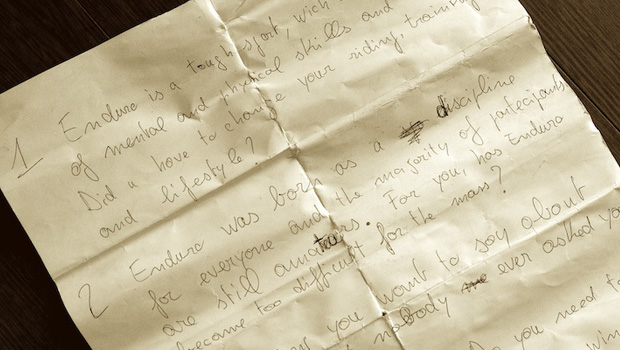 1 Enduro is a tough sport, wich
of mental and physical skills and
Did u have to change your riding, training
and lifestyle?
2 Enduro was born as a discipline
for everyone and the majority of partecipants
are still amateurs. For you, has Enduro
became too difficult for the mass?
you want to say about
nobody ever asked you
Do you need to